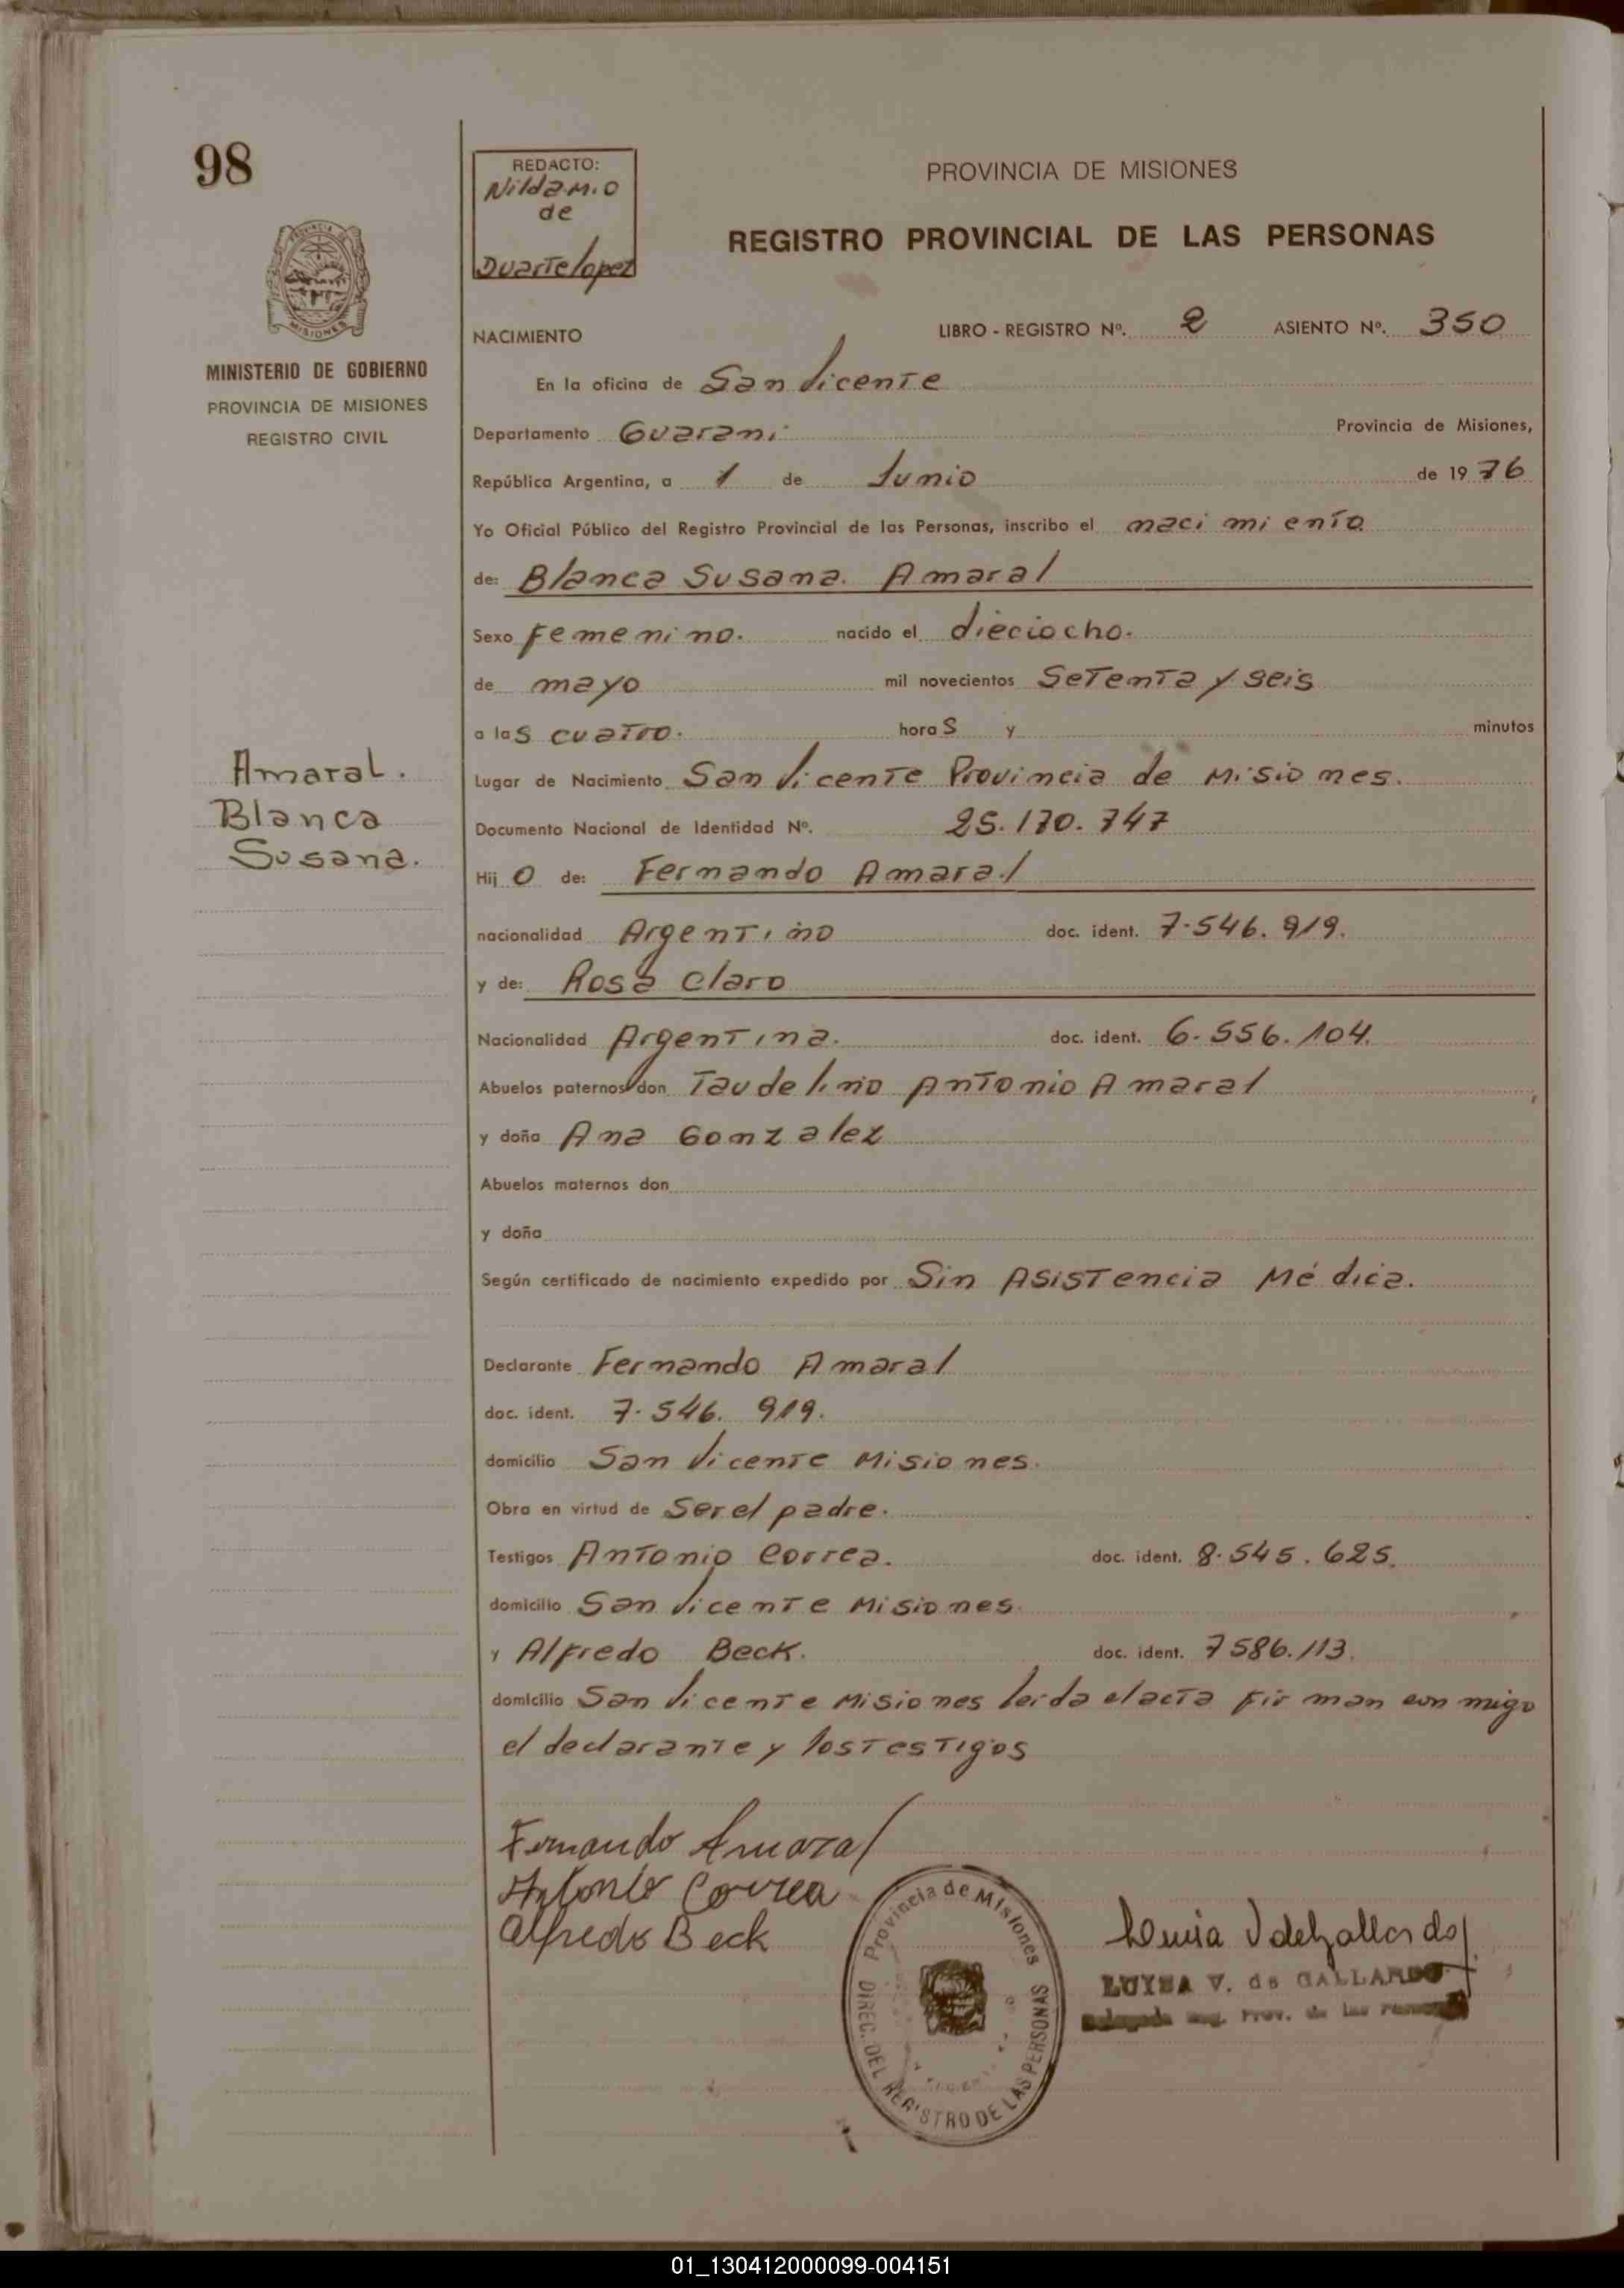 98
REDACTO:
Nilda.M.O
de
Duarte Lopez
PROVINCIA DE MISIONES
REGISTRO PROVINCIAL DE LAS PERSONAS
MINISTERIO DE GOBIERNO
PROVINCIA DE MISIONES
REGISTRO CIVIL
NACIMIENTO LIBRO - REGISTRO Nº. 2 ASIENTO Nº. 350
En la oficina de San Vicente
Departamento Guarani Provincia de Misiones,
República Argentina, a 1 de Junio de 1976
Yo Oficial Público del Registro Provincial de las Personas, inscribo el nacimiento
de: Blanca Susana. Amaral
Sexo Femenino. nacido el dieciocho.
de mayo mil novecientos Setenta y seis
a las cuatro. horas y minutos
Amaral.
Blanca
Susana.
Lugar de Nacimiento San Vicente Provincia de Misiones.
Documento Nacional de Identidad Nº. 25.170.747
Hijo de: Fernando Amaral
nacionalidad Argentino doc. ident. 7.546.919.
y de: Rosa Claro
Nacionalidad Argentina. doc. ident. 6.556.104.
Abuelos paternos don Taudelino Antonio Amaral
y doña Ana Gonzalez
Abuelos maternos don
y doña
Según certificado de nacimiento expedido por Sin Asistencia Médica.
Declarante Fernando Amaral
doc. ident. 7.546.919.
domicilio San Vicente Misiones.
Obra en virtud de Ser el padre.
Testigos Antonio Correa. doc. ident. 8.545.625.
domicilio San Vicente Misiones.
y Alfredo Beck. doc. ident. 7586.113.
domicilio San Vicente Misiones leida el acta firman conmigo
el declarante y los testigos
Fernando Amaral
Antonio Correa
Alfredo Beck
Provincia de Misiones
DIREC. DEL REGISTRO DE LAS PERSONAS
LUYSA V. de GALLARDO
Reg. Prov. de las
01_130412000099-004151